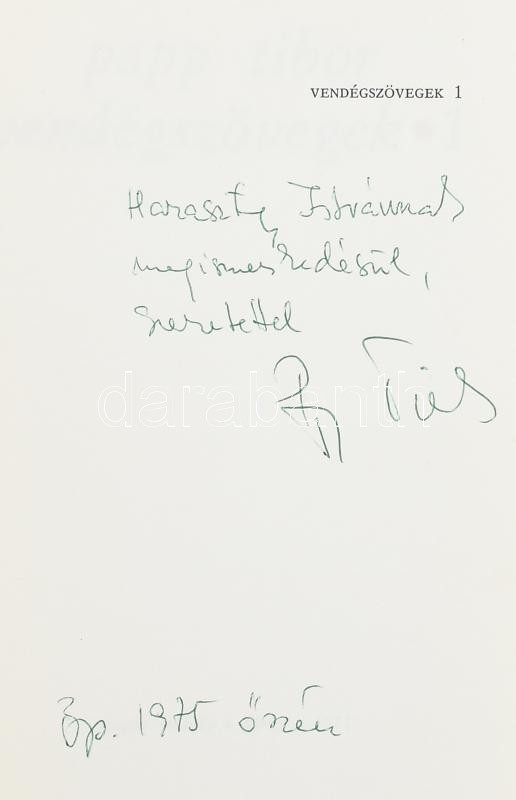 papp tibor
vendégszövegek • 1
VENDÉGSZÖVEGEK 1
Haraszty Istvánnak
megismerkedésül,
szeretettel
Papp Tibor
darabanth
Bp. 1975 őszén